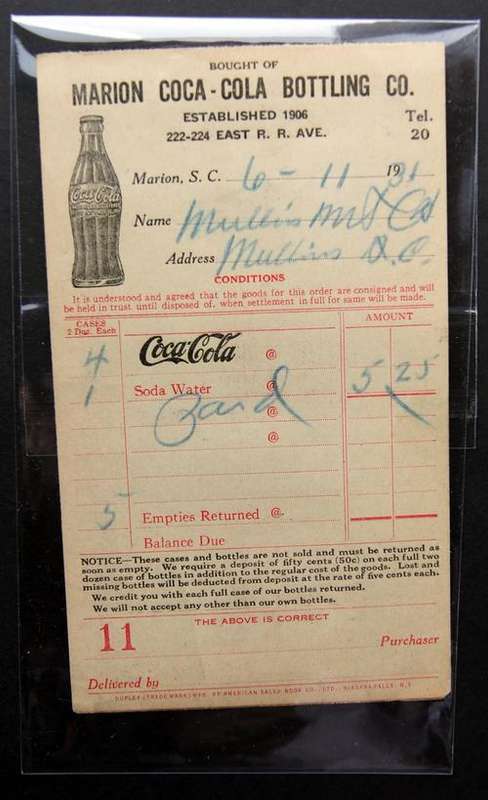 BOUGHT OF
MARION COCA-COLA BOTTLING CO.
ESTABLISHED 1906
222-224 EAST R. R. AVE.
Tel.
20
Coca-Cola
Marion, S. C. 6-11 1931
Name Mullins
Address Mullins S.C.
CONDITIONS
It is understood and agreed that the goods for this order are consigned and will
be held in trust until disposed of, when settlement in full for same will be made.
CASES
2 Doz. Each
AMOUNT
4 Coca-Cola @
1 Soda Water @ 5 25
Paid @
@
5 Empties Returned @
Balance Due
NOTICE—These cases and bottles are not sold and must be returned as
soon as empty. We require a deposit of fifty cents (50c) on each full two
dozen case of bottles in addition to the regular cost of the goods. Lost and
missing bottles will be deducted from deposit at the rate of five cents each.
We credit you with each full case of our bottles returned.
We will not accept any other than our own bottles.
THE ABOVE IS CORRECT
11
Purchaser
Delivered by
AMERICAN SALES BOOK CO., LTD., NIAGARA FALLS, N.Y.